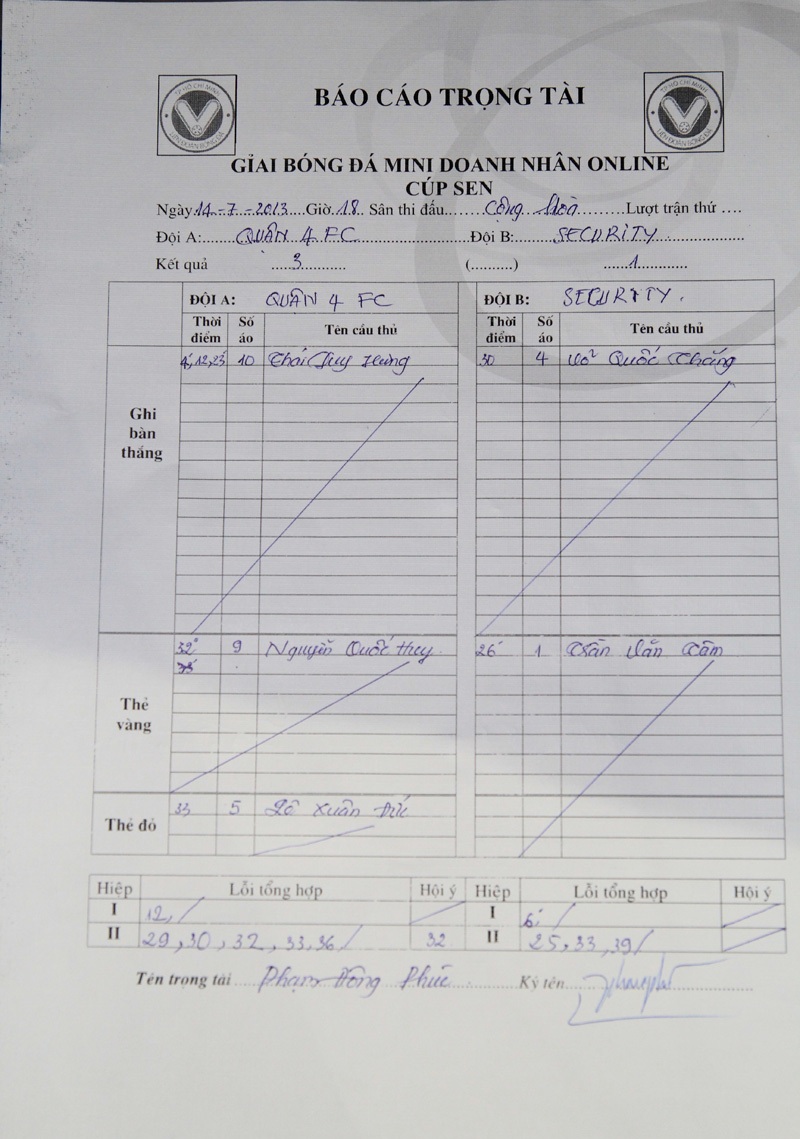 TP HỒ CHÍ MINH
LIÊN ĐOÀN BÓNG ĐÁ
BÁO CÁO TRỌNG TÀI
TP HỒ CHÍ MINH
LIÊN ĐOÀN BÓNG ĐÁ
GIẢI BÓNG ĐÁ MINI DOANH NHÂN ONLINE
CÚP SEN
Ngày 14-7-2013 Giờ 18 Sân thi đấu Cộng Hoà Lượt trận thứ ....
Đội A: QUÂN 4 FC Đội B: SECURITY
Kết quả 3 (..........) 1
ĐỘI A: QUÂN 4 FC ĐỘI B: SECURITY.
Thời điểm Số áo Tên cầu thủ Thời điểm Số áo Tên cầu thủ
Ghi bàn thắng
4, 12, 23 10 Thái Duy Hưng 30 4 Võ Quốc Thắng
Thẻ vàng
32 9 Nguyễn Quốc Huy 26 1 Trần Văn Tâm
Thẻ đỏ
33 5 Lê Xuân Đức
Hiệp Lỗi tổng hợp Hội ý Hiệp Lỗi tổng hợp Hội ý
I 12, / I 6 /
II 29, 30, 32, 33, 36 / 32 II 25, 33, 39 /
Tên trọng tài Phạm Hồng Phúc Ký tên